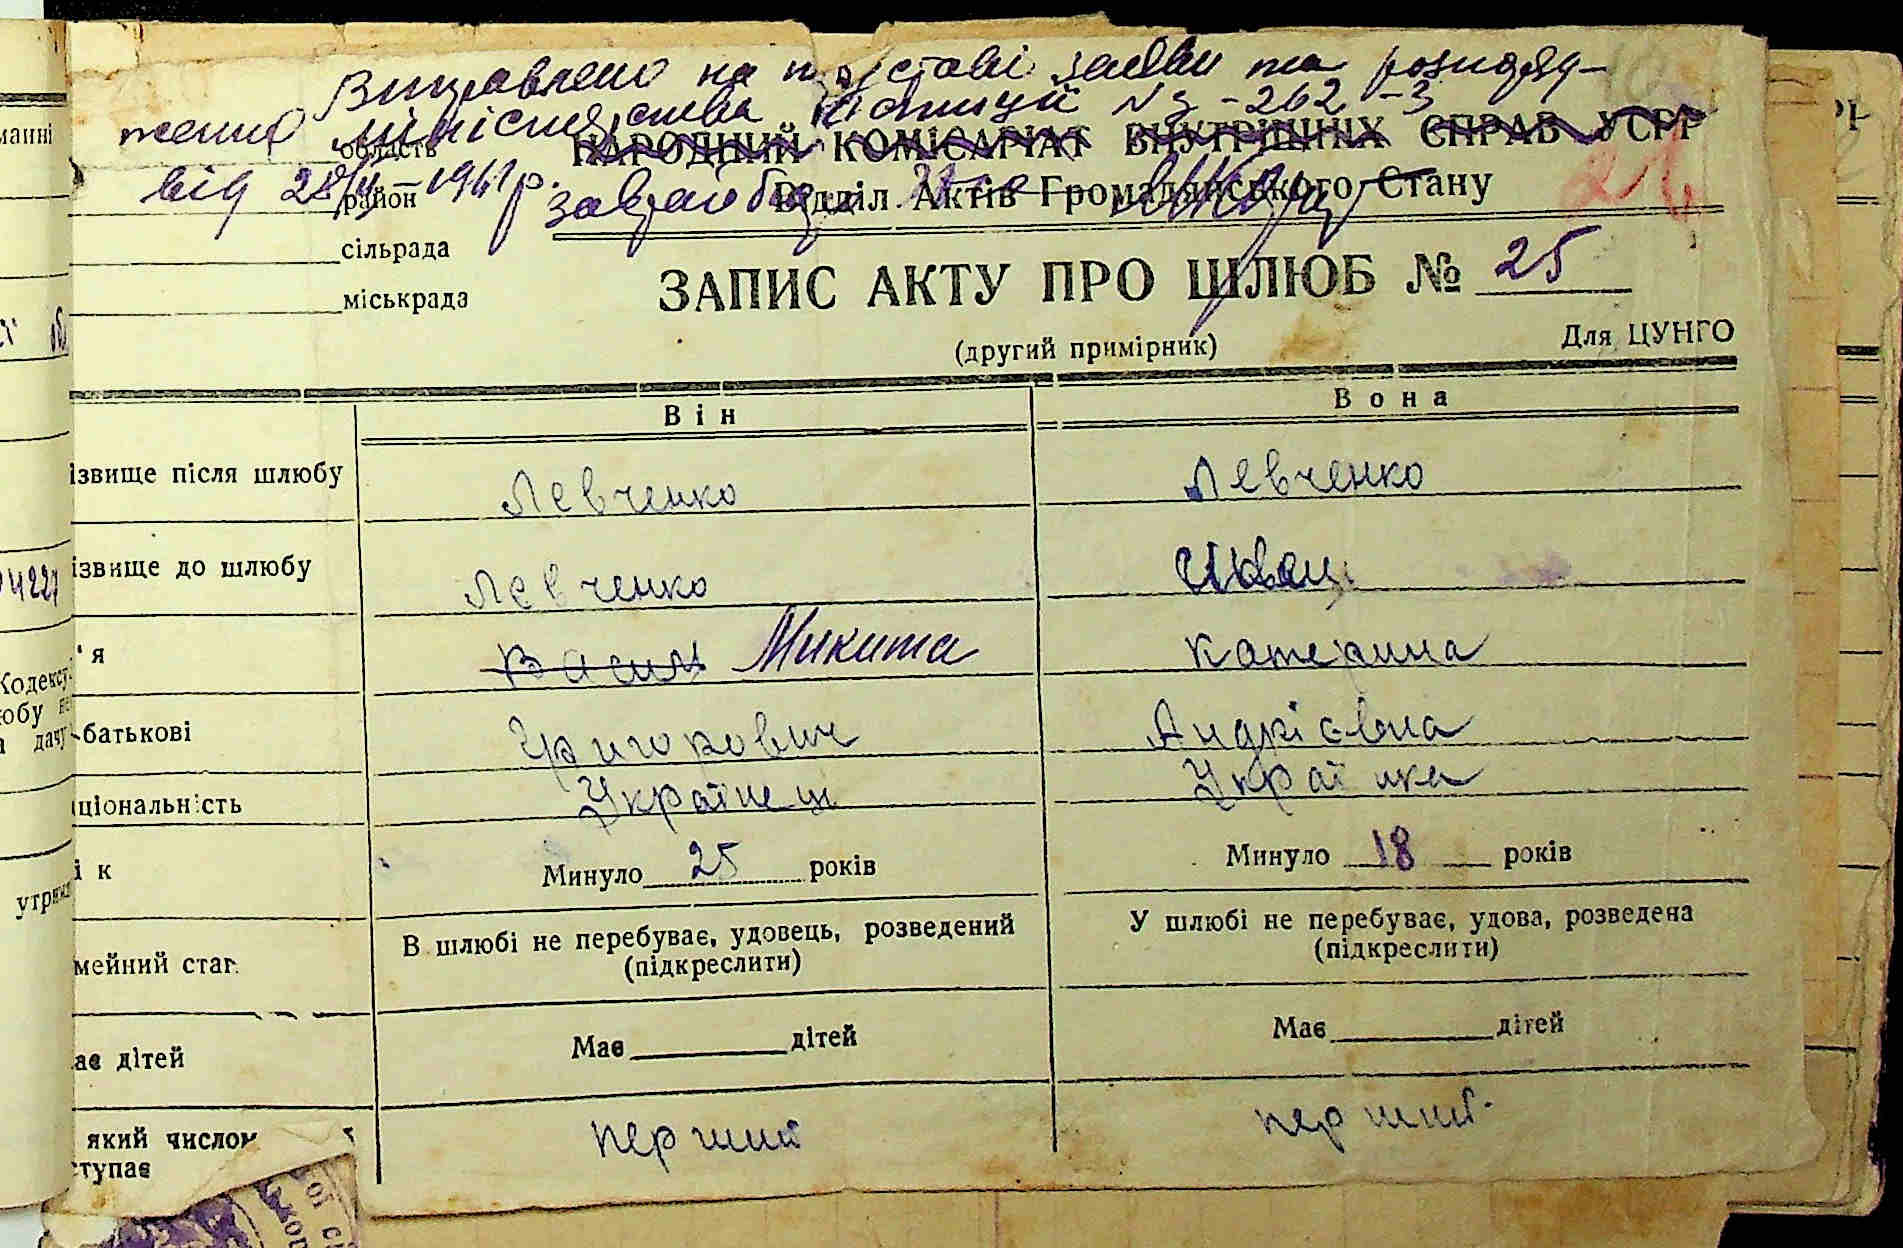 Виправлено на підставі заяви та розпоряд-
ження міністерства Юстиції № 3-262-3
область
НАРОДНИЙ КОМІСАРІАТ ВНУТРІШНІХ СПРАВ УСРР
від 28/ -1961 р.
район
Відділ Актів Громадянського Стану
21
сільрада
міськрада
ЗАПИС АКТУ ПРО ШЛЮБ № 25
(другий примірник)
Для ЦУНГО
Він
Вона
ізвище після шлюбу
Левченко
Левченко
ізвище до шлюбу
Левченко
4221
'я
Васил Микита
Катерина
Кодексу
юбу не
дачу
-батькові
Григорович
Андрієвна
ціональність
Українець
Українка
ік
Минуло 25 років
Минуло 18 років
утрим
мейний стан
В шлюбі не перебуває, удовець, розведений
(підкреслити)
У шлюбі не перебуває, удова, розведена
(підкреслити)
ає дітей
Має дітей
Має дітей
який числом
ступає
перший
перший